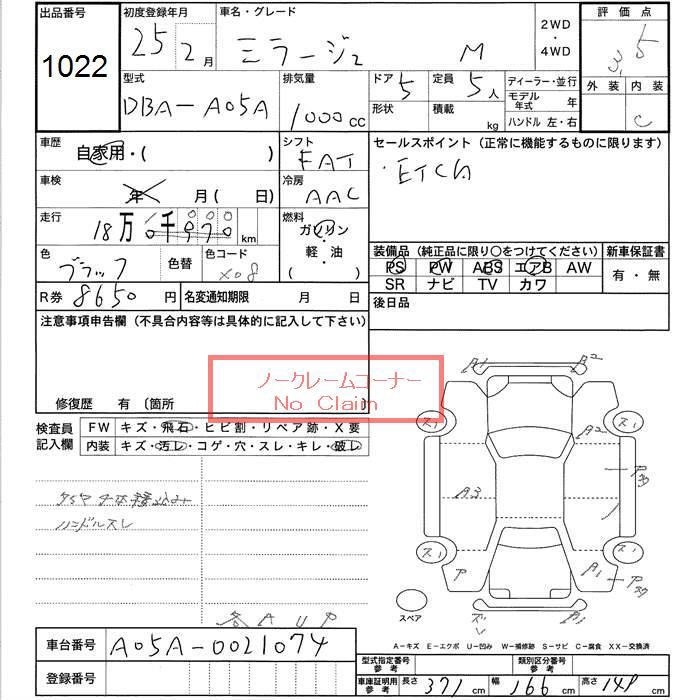 出品番号
1022
初度登録年月
25年 2月
車名・グレード
ミラージュ M
2WD・4WD
評価点
3.5
外装 内装
C
型式
DBA-A05A
排気量
1000cc
ドア 5
形状
定員 5人
積載 kg
ディーラー・並行
モデル年式 年
ハンドル 左・右
車歴
自家用・( )
シフト
FAT
セールスポイント(正常に機能するものに限ります)
・ETC
車検
年 月( 日)
冷房
AAC
走行
18万 千970km
燃料
ガソリン・軽油( )
色
ブラック
色替
色コード
X08
装備品(純正品に限り○をつけてください)
PS PW ABS エアB AW
SR ナビ TV カワ
新車保証書
有・無
R券 8650円
名変通知期限 月 日
後日品
注意事項申告欄(不具合内容等は具体的に記入して下さい)
ノークレームコーナー
No Claim
修復歴 有 〔箇所 〕
検査員記入欄
FW キズ・飛石・ヒビ割・リペア跡・X要
内装 キズ・汚レ・コゲ・穴・スレ・キレ・破レ
ハンドルスレ
各AUP
A1 A2
ス1 ス1
A2
A3
ス1 ス1
P A1
スペア
A-キズ E-エクボ U-凹み W-補修跡 S-サビ C-腐食 XX-交換済
車台番号
A05A-0021074
登録番号
型式指定番号参考
類別区分番号参考
車庫証明用参考
長さ 371cm 幅 166cm 高さ 149cm